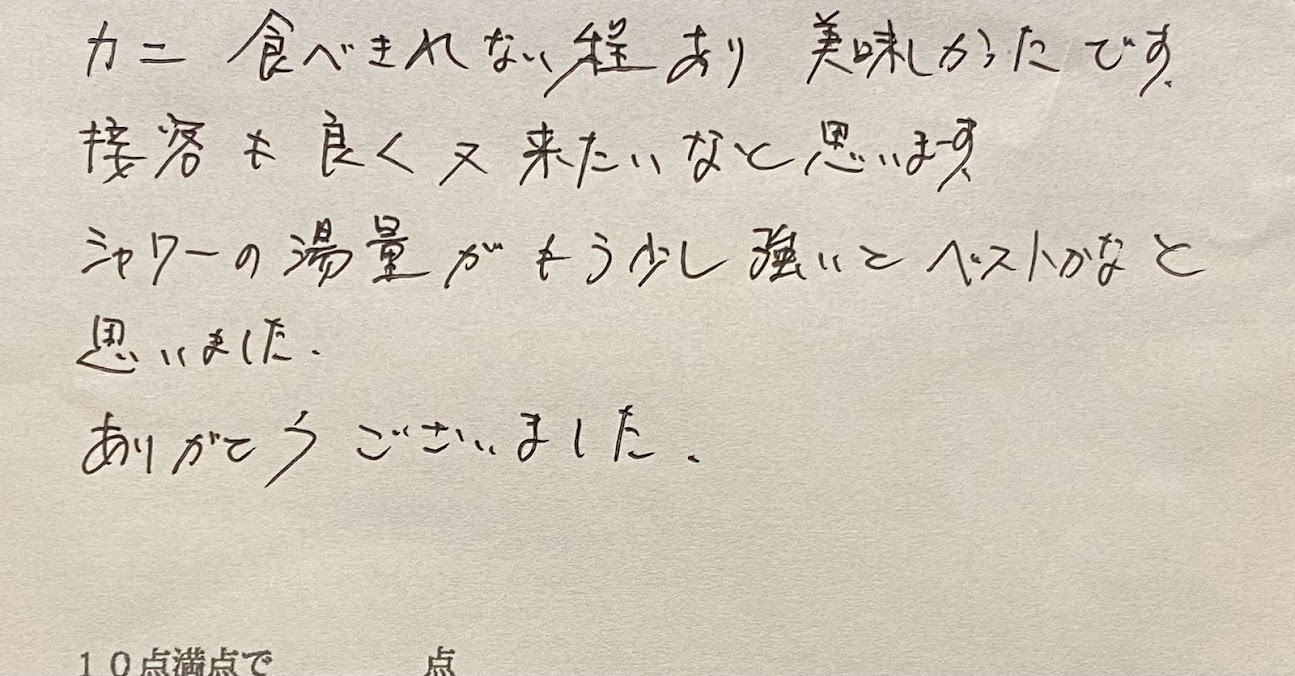 カニ 食べきれない程あり 美味しかったです。
接客も良く又来たいなと思います。
シャワーの湯量がもう少し強いとベストかなと
思いました.
ありがとうございました.
10点満点で 点